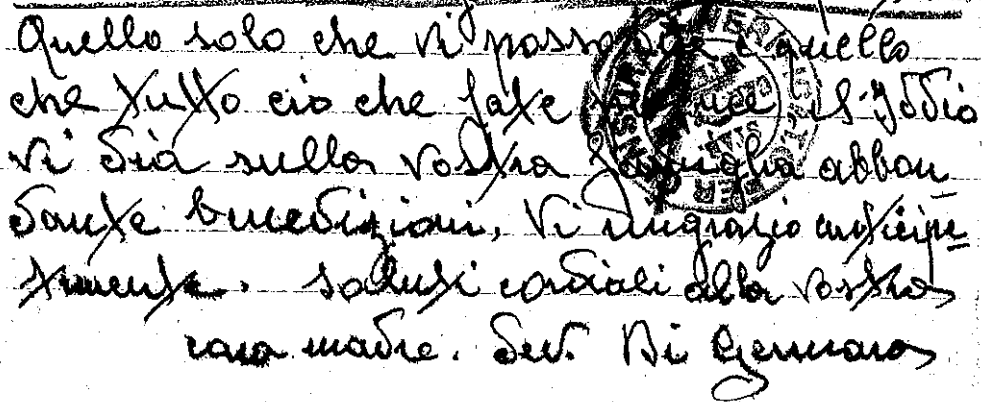 Quello solo che vi posso dire è quello
che tutto cio che fate il Sig. Iddio
vi dia sulla vostra famiglia abbon
dante benedizioni, vi ringrazio anticipa=
tamente. Saluti cordiali alla vostra
cara madre. Dev. Di Gennaro